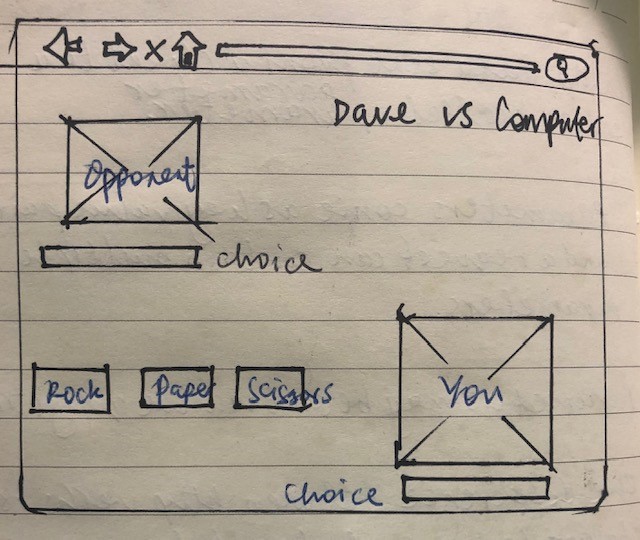 Dave vs Computer
Opponent
choice
Rock
Paper
Scissors
You
choice